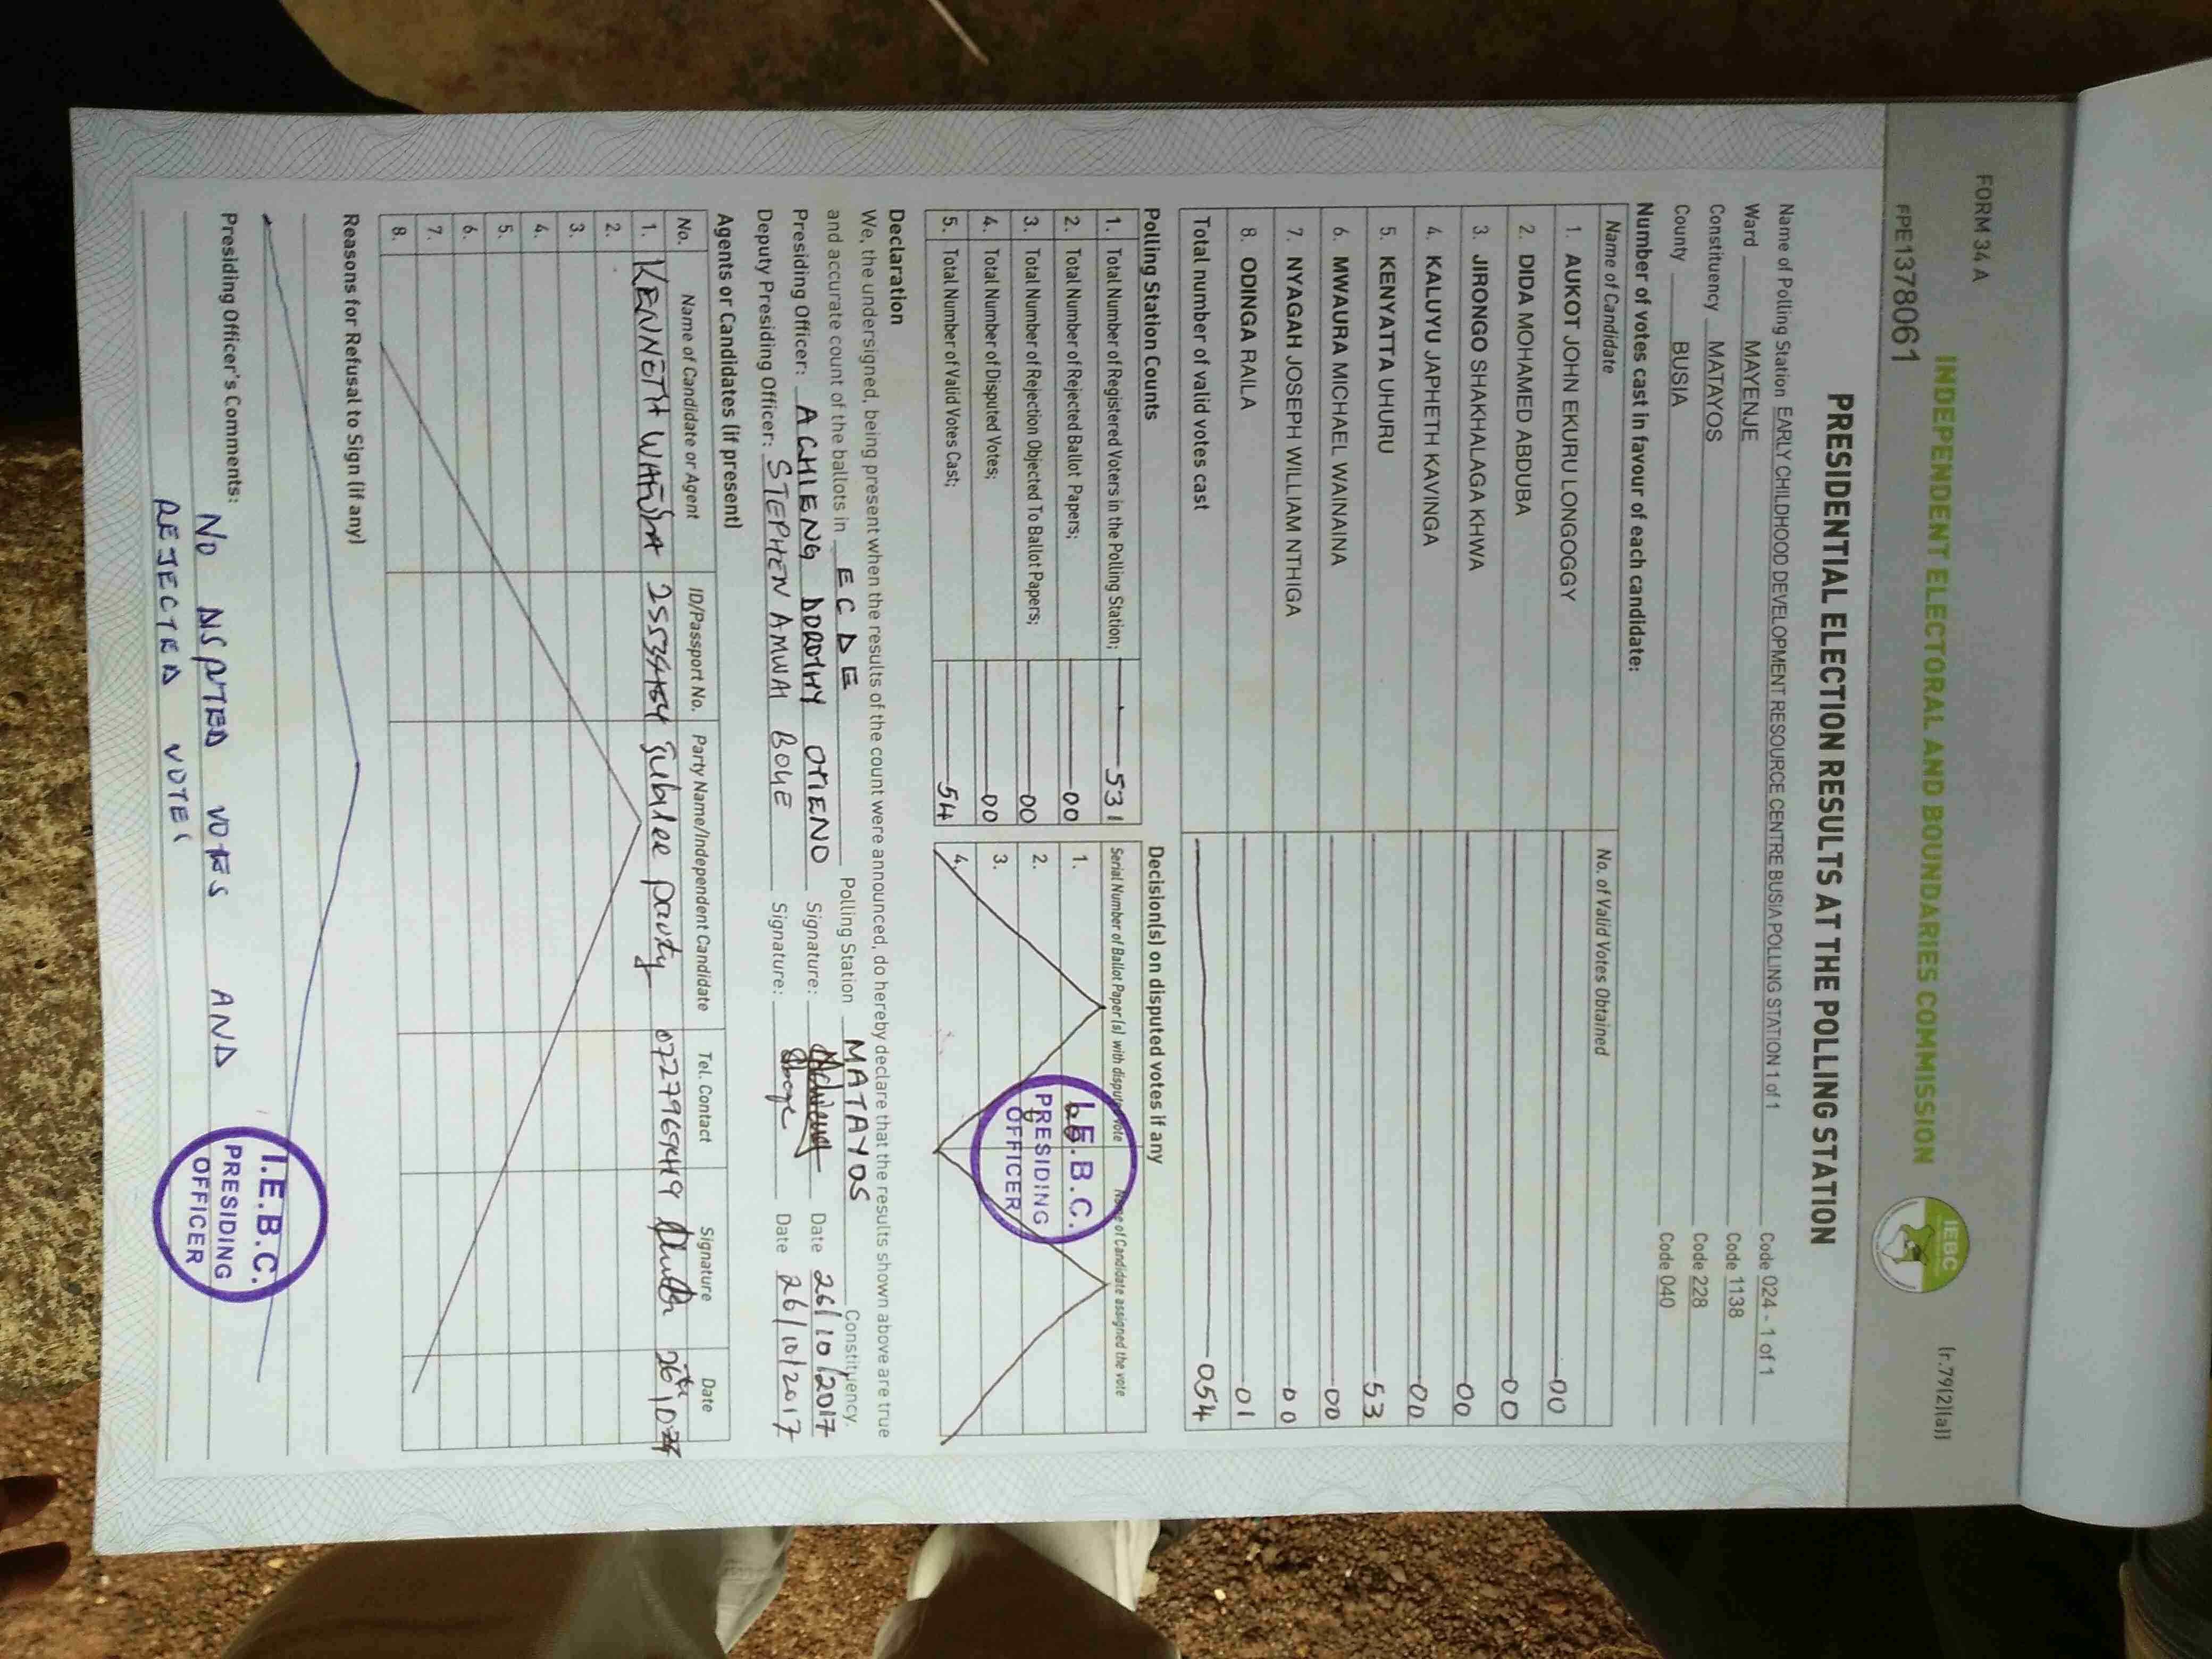 FORM 34 A
(r.79(2)(a))
INDEPENDENT ELECTORAL AND BOUNDARIES COMMISSION
IEBC
FPE1378061
PRESIDENTIAL ELECTION RESULTS AT THE POLLING STATION
Name of Polling Station EARLY CHILDHOOD DEVELOPMENT RESOURCE CENTRE BUSIA POLLING STATION 1 of 1 Code 024 - 1 of 1
Ward MAYENJE Code 1138
Constituency MATAYOS Code 228
County BUSIA Code 040
Number of votes cast in favour of each candidate:
Name of Candidate No. of Valid Votes Obtained
1. AUKOT JOHN EKURU LONGOGGY 00
2. DIDA MOHAMED ABDUBA 00
3. JIRONGO SHAKHALAGA KHWA 00
4. KALUYU JAPHETH KAVINGA 00
5. KENYATTA UHURU 53
6. MWAURA MICHAEL WAINAINA 00
7. NYAGAH JOSEPH WILLIAM NTHIGA 00
8. ODINGA RAILA 01
Total number of valid votes cast 054
Polling Station Counts
1. Total Number of Registered Voters in the Polling Station; 531
2. Total Number of Rejected Ballot Papers; 00
3. Total Number of Rejection Objected To Ballot Papers; 00
4. Total Number of Disputed Votes; 00
5. Total Number of Valid Votes Cast; 54
Decision(s) on disputed votes if any
Serial Number of Ballot Paper (s) with dispute vote Name of Candidate assigned the vote
1.
2.
3.
4.
I.E.B.C.
PRESIDING
OFFICER
Declaration
We, the undersigned, being present when the results of the count were announced, do hereby declare that the results shown above are true
and accurate count of the ballots in ECDE Polling Station MATAYOS Constituency.
Presiding Officer: ACHIENG DOROTHY OTIENO Signature: Date 26/10/2017
Deputy Presiding Officer: STEPHEN AMWAI BOGE Signature: Date 26/10/2017
Agents or Candidates (if present)
No. Name of Candidate or Agent ID/Passport No. Party Name/Independent Candidate Tel. Contact Signature Date
1. KENNETH Jubilee party
2.
3.
4.
5.
6.
7.
8.
Reasons for Refusal to Sign (if any)
Presiding Officer's Comments:
NO DISPUTED VOTES AND
REJECTED VOTES
I.E.B.C.
PRESIDING
OFFICER